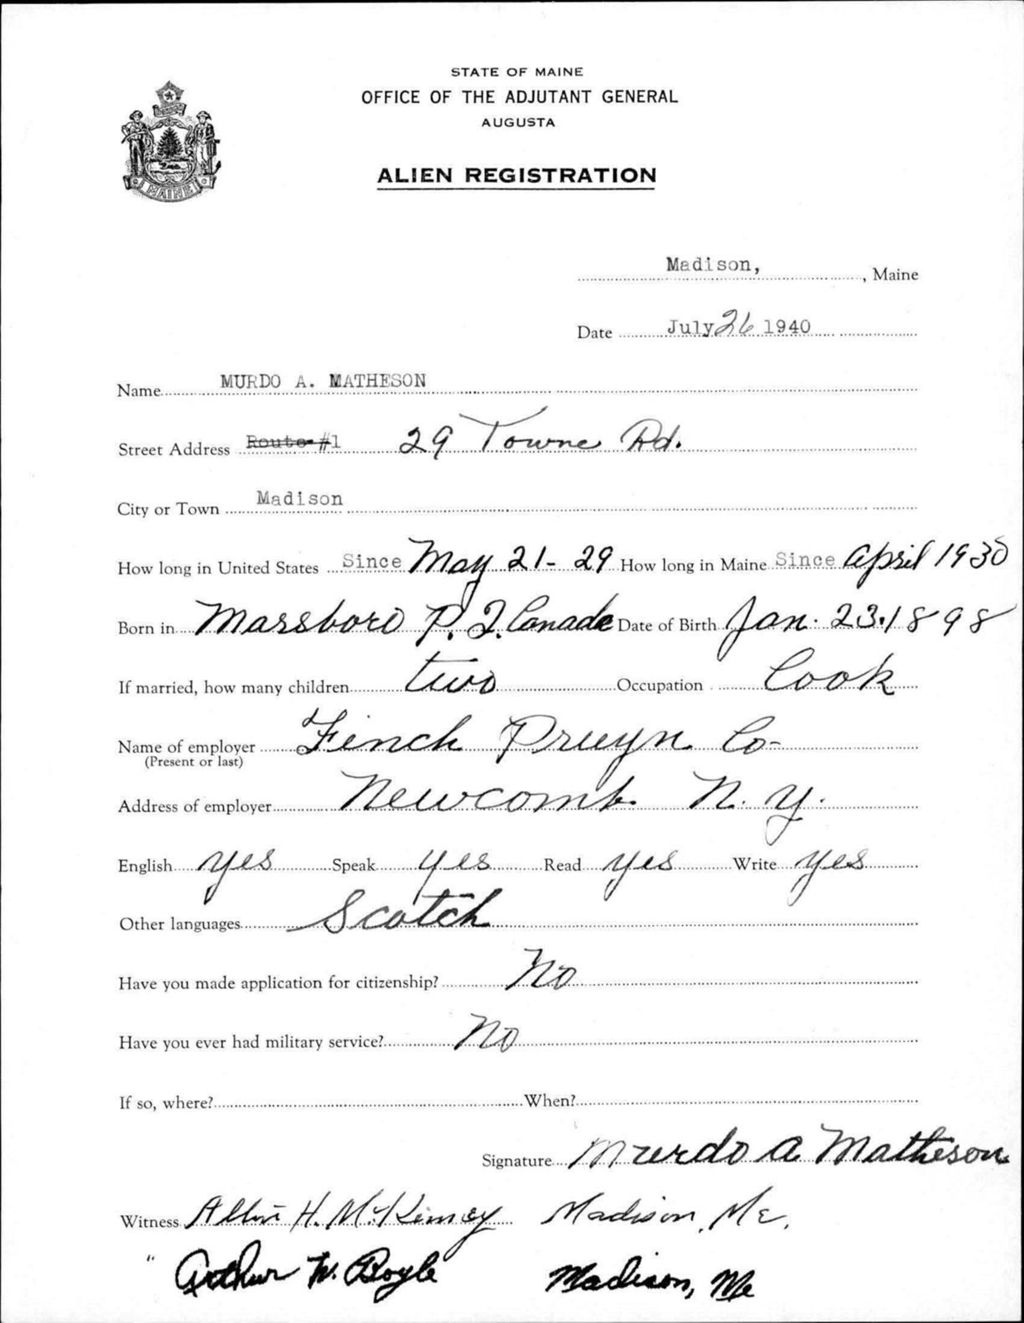 STATE OF MAINE
OFFICE OF THE ADJUTANT GENERAL
AUGUSTA
ALIEN REGISTRATION
MAINE
Madison, , Maine
Date July 26 1940
Name MURDO A. MATHESON
Street Address Route #1 29 Towne Rd.
City or Town Madison
How long in United States Since May 21-29 How long in Maine Since April 1930
Born in Marsboro P. Q. Canada Date of Birth Jan. 23. 1898
If married, how many children two Occupation Cook
Name of employer Finch Pruyn Co-
(Present or last)
Address of employer Newcomb N. Y.
English yes Speak yes Read yes Write yes
Other languages Scotch
Have you made application for citizenship? No
Have you ever had military service? No
If so, where? When?
Signature Murdo A Matheson
Witness H. McKenney Madison, Me.
" Arthur W. Boyle Madison, Me